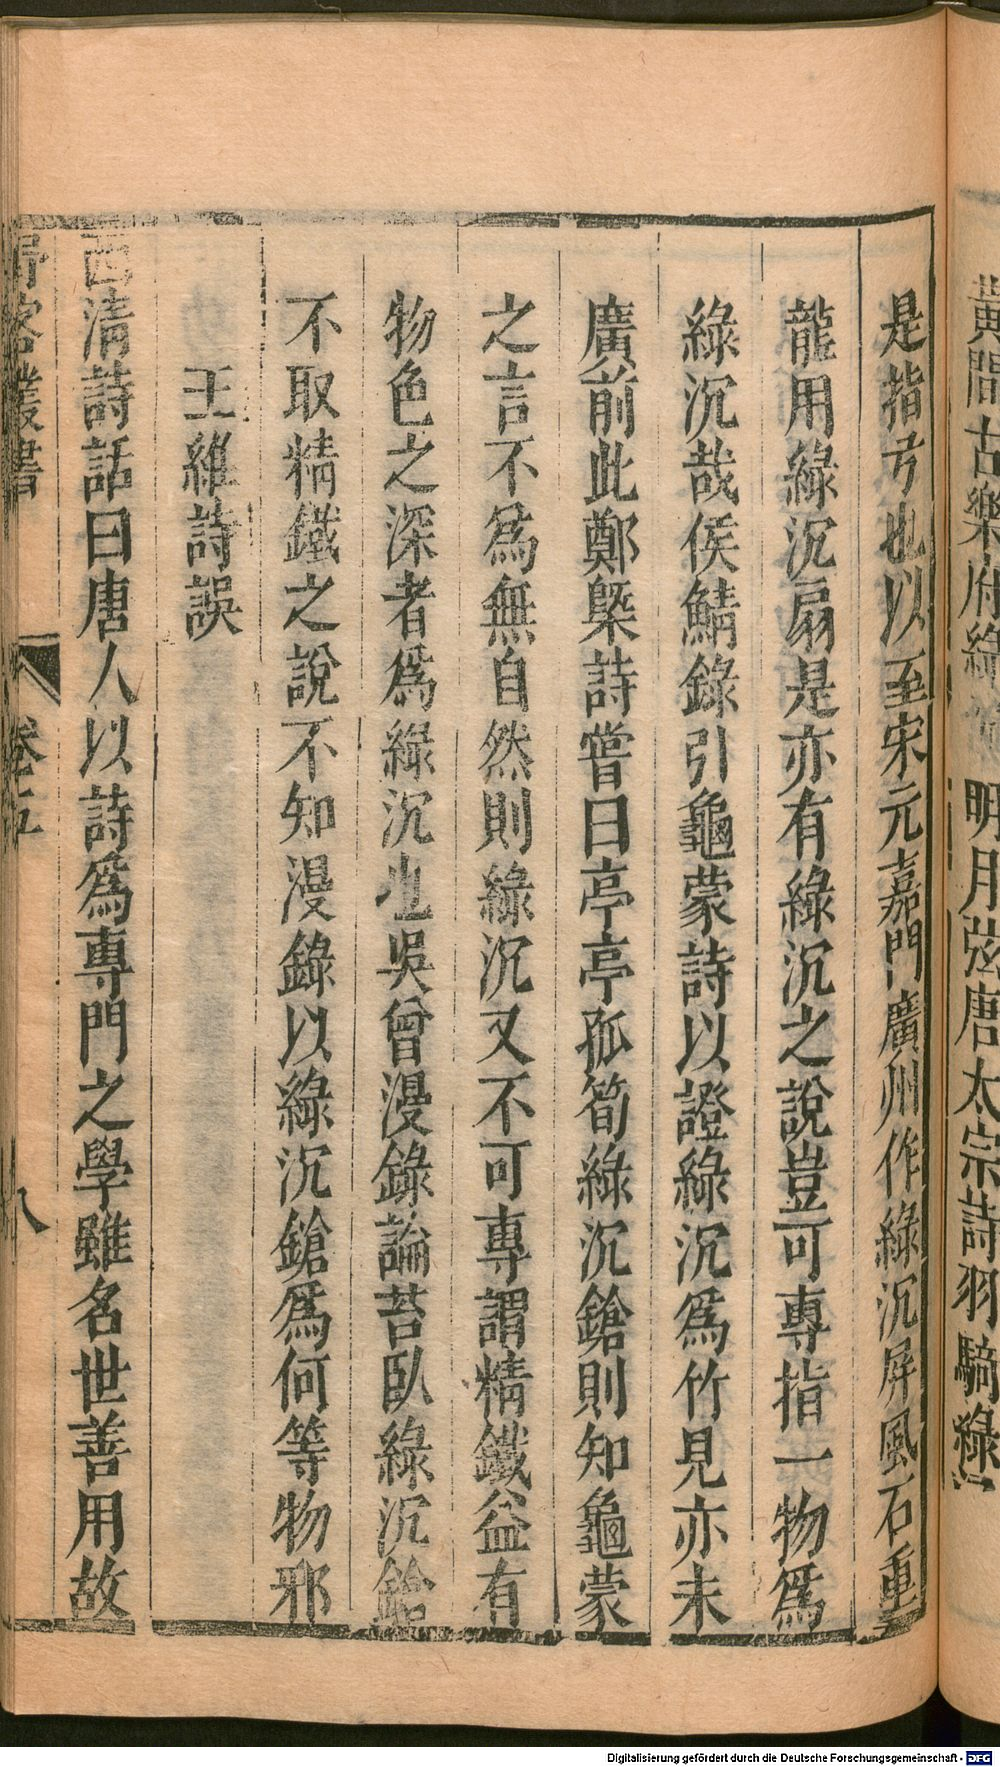 黃間古樂府綠沉明月弦唐太宗詩羽騎綠
是指弓也以至宋元嘉門廣州作綠沉屏風石重
龍用綠沉扇是亦有綠沉之說豈可專指一物爲
綠沉哉侯鯖錄引龜蒙詩以證綠沉爲竹見亦未
廣前此鄭槩詩嘗曰亭亭孤筍綠沉鎗則知龜蒙
之言不爲無自然則綠沉又不可專謂精鐵益有
物色之深者爲綠沉也吳曾漫錄論苔臥綠沉鎗
不取精鐵之說不知漫錄以綠沉鎗爲何等物邪
王維詩誤
西清詩話曰唐人以詩爲專門之學雖名世善用故
野客叢書 卷五 八
Digitalisierung gefördert durch die Deutsche Forschungsgemeinschaft - DFG